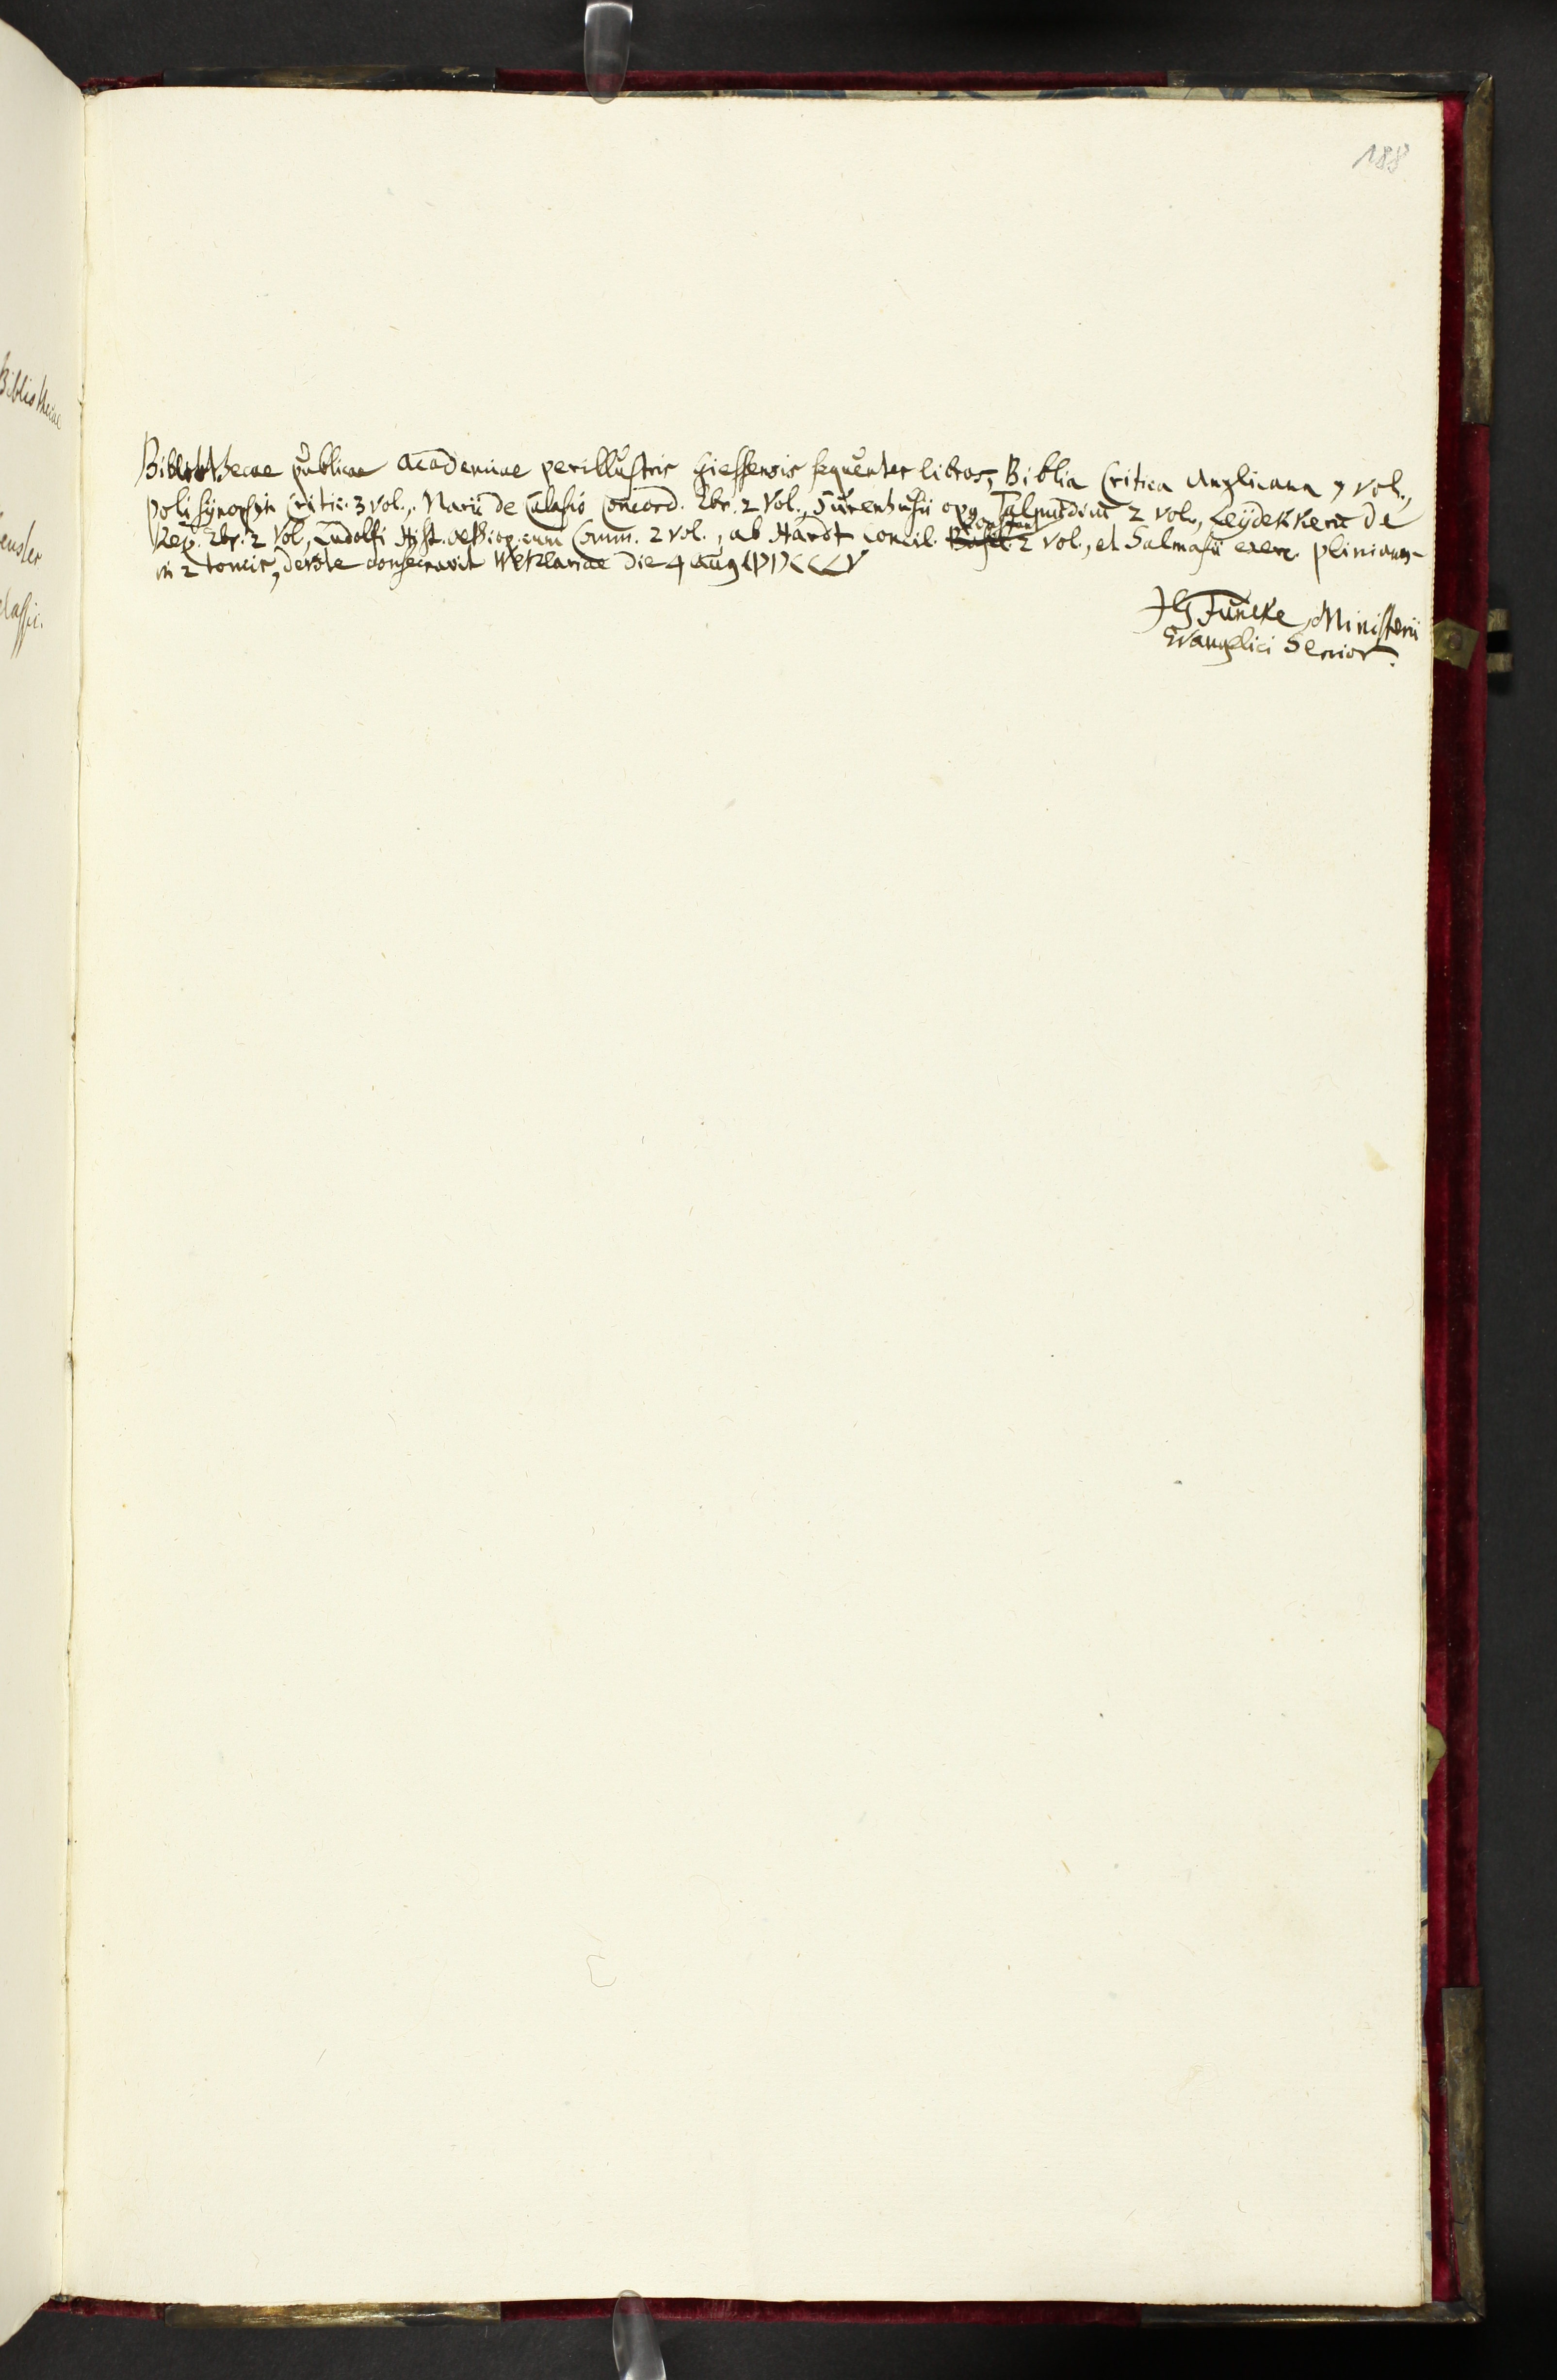 188
Bibliothecae publicae academiae perillustris Giessensis sequentes libros, Biblia Critica Anglicana 7 vol.,
Poli Synopsin Critic. 3 vol., Marii de Calasio Concord. Ebr. 2 Vol., Surenhusii opg Talmudicũ 2 vol., Leÿdekkerũ de
Rep. Ebr. 2 Vol, Ludolfi Hist. aethiop. cum Comm. 2 vol., ab Hardt Concil. Constant 2 vol., et Salmasii exerc. plinianas
in 2 tomis, consecravit Wetzlariae die 4 Aug
JG Funcke, Ministerii
Evangelici Senior.
Bibliothecae